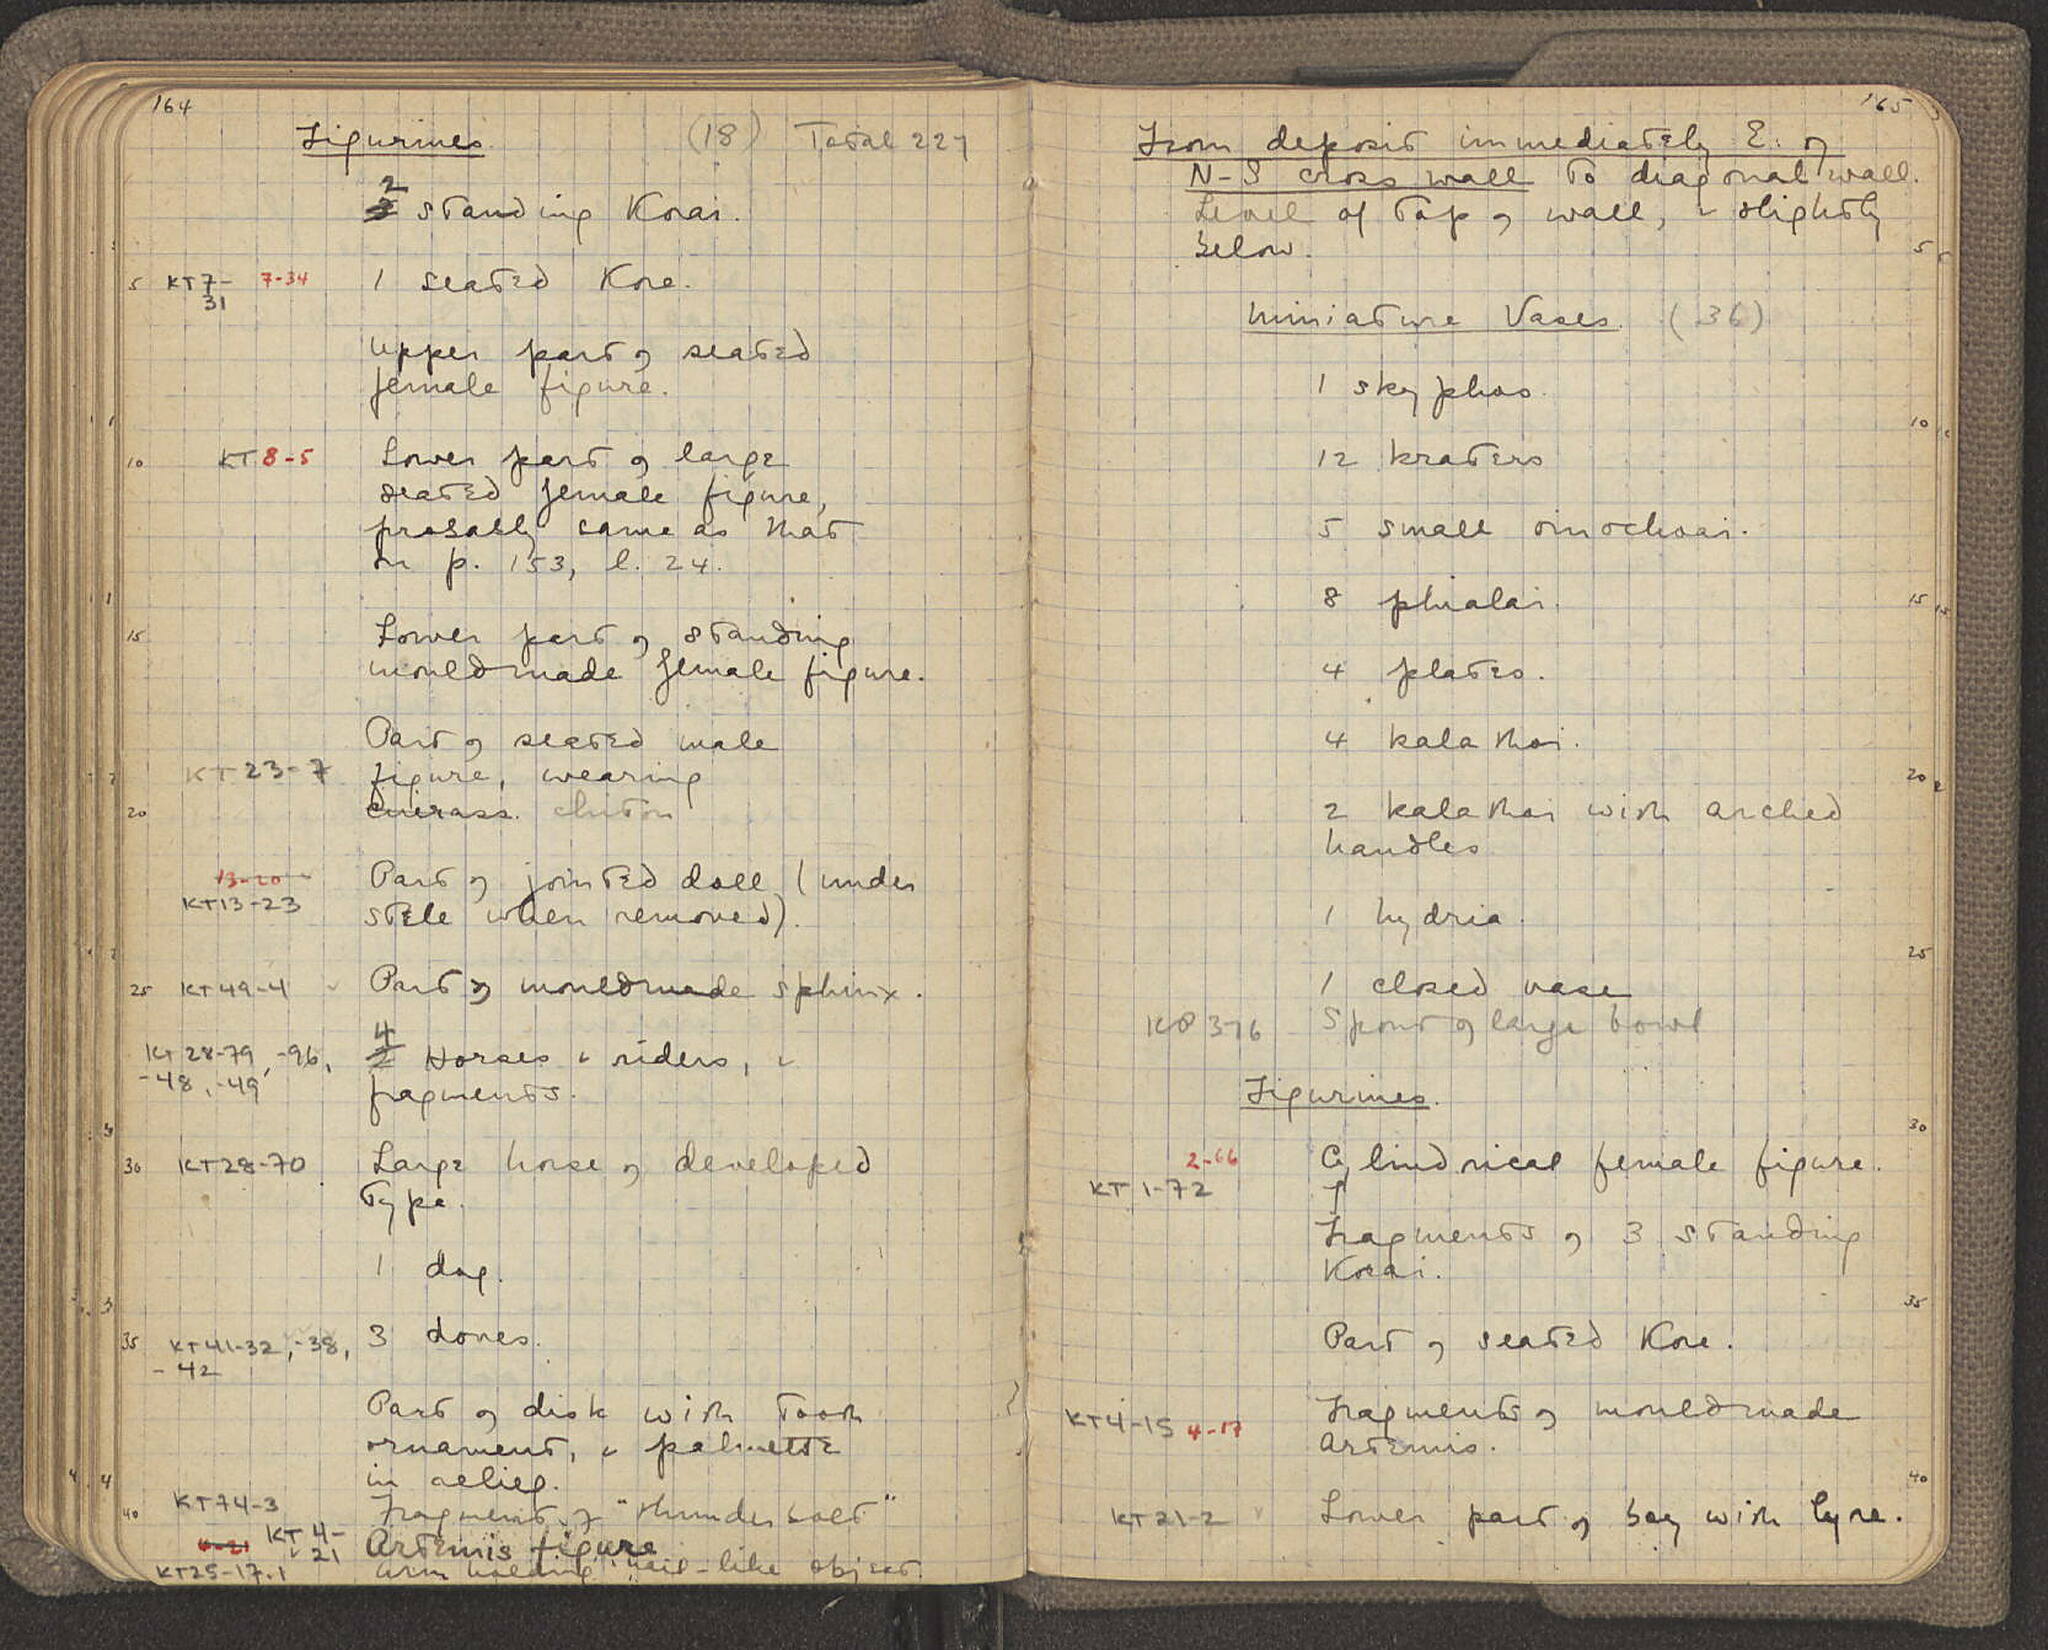 164
Figurines. (18) Total 227
2
3 standing Korai.
5 KT7-31 7-34 1 seated Kore.
Upper part of seated
female figure.
10 KT 8-5 Lower part of large
seated female figure,
probably same as that
on p. 153, l. 24.
15 Lower part of standing
mouldmade female figure.
Part of seated male
KT 23-7 figure, wearing
20 cuirass. chiton
13-20 Part of jointed doll (under
KT13-23 stele when removed).
25 KT49-4 Part of mouldmade sphinx.
4
KT 28-79, -96, 2 Horses & riders, &
-48, -49 fragments.
30 KT28-70 Large horse of developed
type.
1 dog.
35 KT41-32, -38, 3 doves.
-42
Part of disk with tooth
ornament, & palmette
in relief.
40 KT74-3 Fragment of "thunderbolt"
4-21 KT 4-21 Artemis figure
KT25-17.1 arm holding nail-like object.
165
From deposit immediately E. of
N-S cross wall to diagonal wall.
Level of top of wall, & slightly
5 below.
Miniature Vases. (36)
1 skyphos.
10 12 kraters
5 small oinochoai.
15 8 phialai.
4 plates.
4 kalathoi.
20 2 kalathoi with arched
handles
1 hydria.
25 1 closed vase
KP 376 Spout of large bowl
Figurines.
30 2-66 Cylindrical female figure.
KT 1-72
Fragments of 3 standing
Korai.
35 Part of seated Kore.
KT4-15 4-17 Fragments of mouldmade
Artemis.
40 KT 21-2 Lower part of boy with lyre.